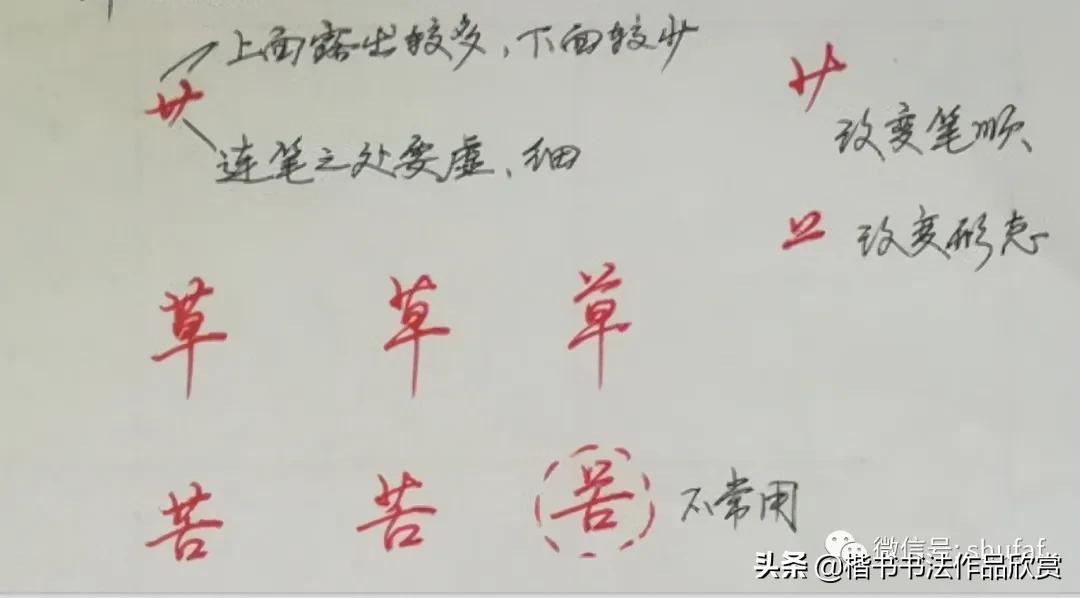 上面露出较多，下面较少
艹
艹
连笔之处要虚、细
改变笔顺
改变形态
草 草 草
苦 苦 苦 不常用
微信号: shufaf
头条 @楷书书法作品欣赏